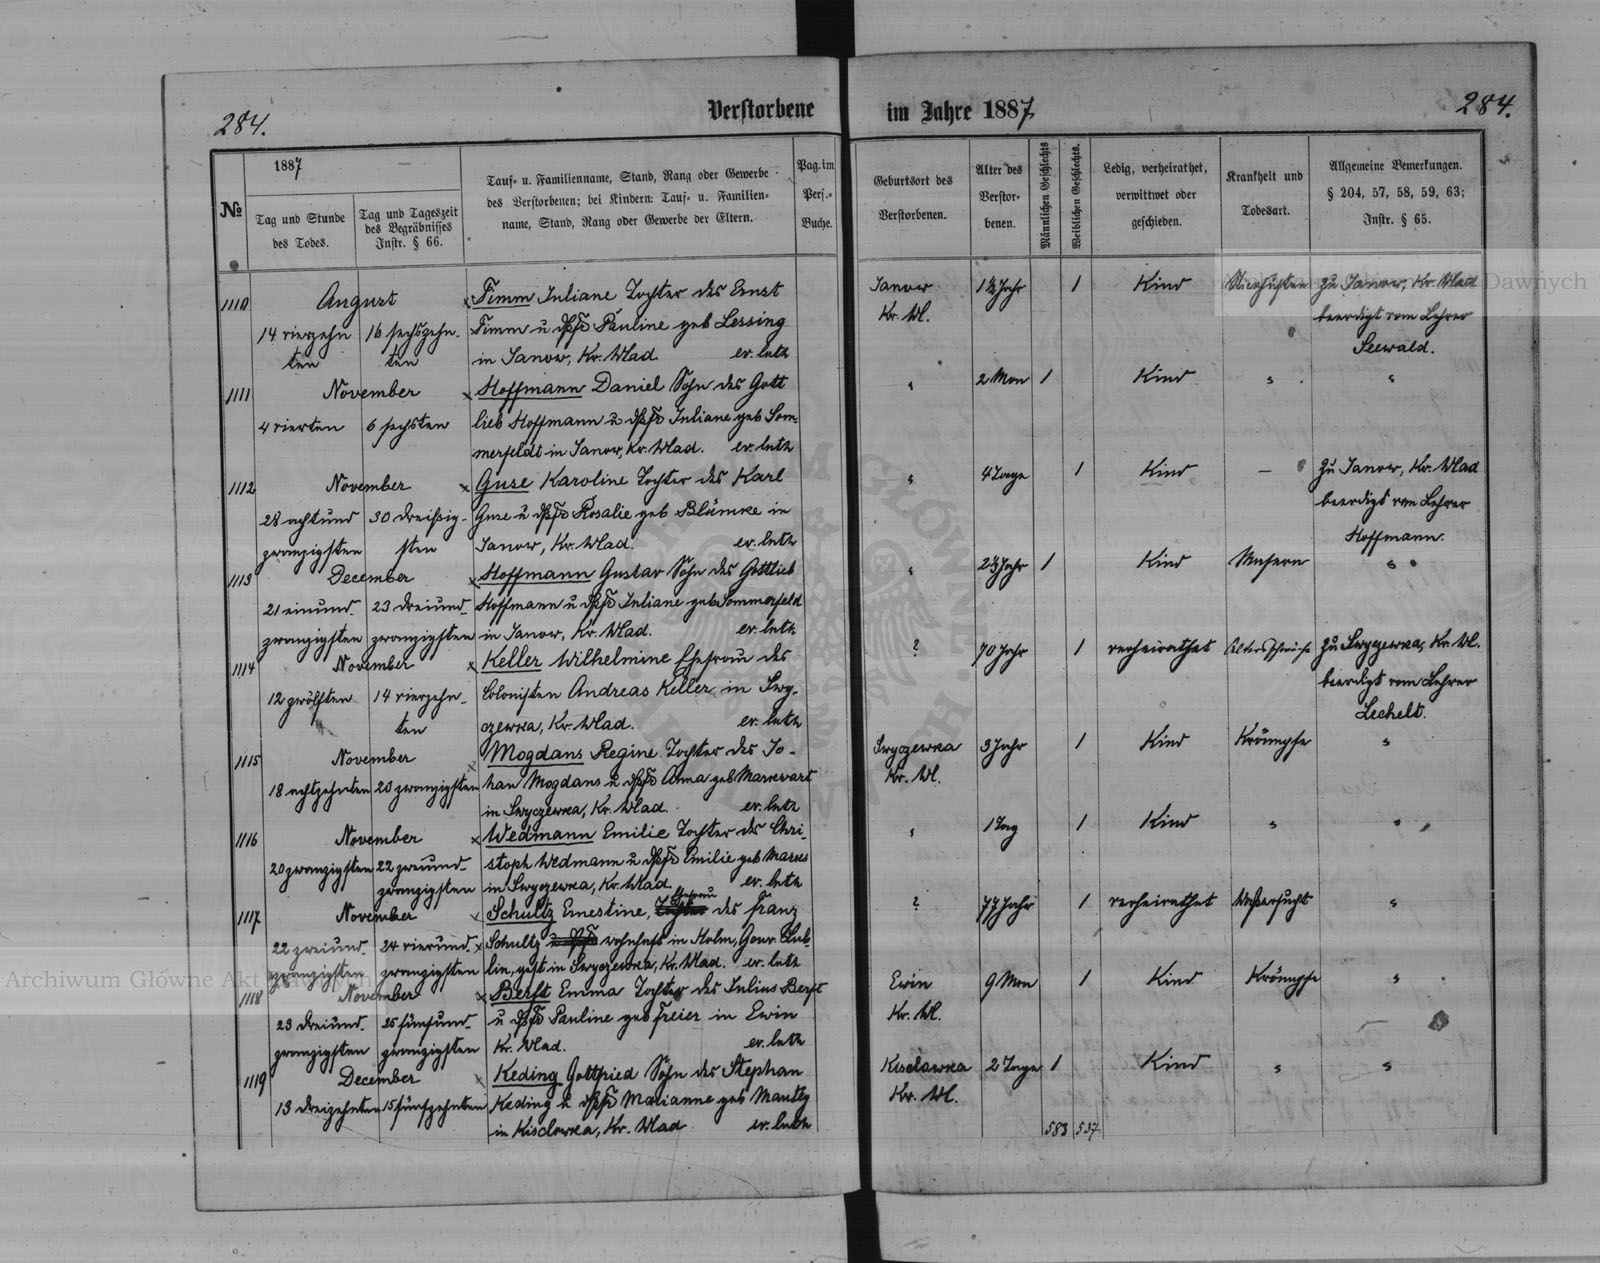 284.
Verstorbene im Jahre 1887
284.
№
1887
Tag und Stunde
des Todes.
Tag und Tageszeit
des Begräbnisses
Instr. § 66.
Tauf- u. Familienname, Stand, Rang oder Gewerbe
des Verstorbenen; bei Kindern: Tauf- u. Familien-
name, Stand, Rang oder Gewerbe der Eltern.
Pag. im
Pers.-
Buche.
Geburtsort des
Verstorbenen.
Alter des
Verstor-
benen.
Männlichen Geschlechts
Weiblichen Geschlechts.
Ledig, verheirathet,
verwittwet oder
geschieden.
Krankheit und
Todesart.
Allgemeine Bemerkungen.
§ 204, 57, 58, 59, 63;
Instr. § 65.
1110 August x Timm Juliane Tochter des Ernst Janow 1 Kind zu Janow, Kr. Wlad
14 vierzehn 16 sechszehn- Timm u Pauline geb Lessing Kr. Wl. beerdigt vom Lehrer
ten ten in Janow, Kr. Wlad ev. luth Seewald.
1111 November x Hoffmann Daniel Sohn des Gott " 2 Mon 1 Kind " "
4 vierten 6 sechsten lieb Hoffmann u Juliane geb Som-
merfeldt in Janow, Kr. Wlad. ev. luth
1112 November x Guse Karoline Tochter des Karl " 4 Tage 1 Kind – zu Janow, Kr. Wlad
28 achtund 30 dreißig- Guse u Rosalie geb Blümke in beerdigt vom Lehrer
zwanzigsten sten Janow, Kr. Wlad. ev. luth Hoffmann.
1113 December x Hoffmann Gustav Sohn des Gottlieb " Jahr 1 Kind Masern "
21 einund- 23 dreiund- Hoffmann u Juliane geb Sommerfeld
zwanzigsten zwanzigsten in Janow, Kr. Wlad. ev. luth
1114 November x Keller Wilhelmine Ehefrau des ? 70 Jahr 1 verheirathet Altersschwäche zu Swyczewka, Kr. Wl.
12 zwölften 14 vierzehn- Colonisten Andreas Keller in Swy- beerdigt vom Lehrer
ten czewka, Kr. Wlad. ev. luth Lechelt.
1115 November x Mogdans Regine Tochter des Jo- Swyczewka 3 Jahr 1 Kind Krämpfe "
18 achtzehnten 20 zwanzigsten han Mogdans u Anna geb Markwart Kr. Wl.
in Swyczewka, Kr. Wlad. ev. luth
1116 November x Wedmann Emilie Tochter des Chri- " 1 Tag 1 Kind " "
20 zwanzigsten 22 zweiund- stoph Wedmann u Emilie geb
zwanzigsten in Swyczewka, Kr. Wlad ev. luth
Ehefrau
1117 November x Schultz Ernestine, des Franz ? 77 Jahr 1 verheirathet Waßersucht "
22 zweiund- 24 vierund- x Schultz wohnhaft in Holm, Gouv. Lub-
zwanzigsten zwanzigsten lin, gest in Swyczewka, Kr. Wlad. ev. luth
1118 November x Berft Emma Tochter des Julius Berft Ewin 9 Mon 1 Kind Krämpfe "
23 dreiund- 25 fünfund- u Pauline geb Freier in Ewin Kr. Wl.
zwanzigsten zwanzigsten Kr. Wlad. ev. luth
1119 December x Keding Gottfried Sohn des Stephan Kisclawka 2 Tage 1 Kind " "
13 dreizehnten 15 fünfzehnten Keding u Marianne geb Mantey Kr. Wl.
in Kisclowka, Kr. Wlad ev. luth 583 537
Archiwum Główne Akt Dawnych